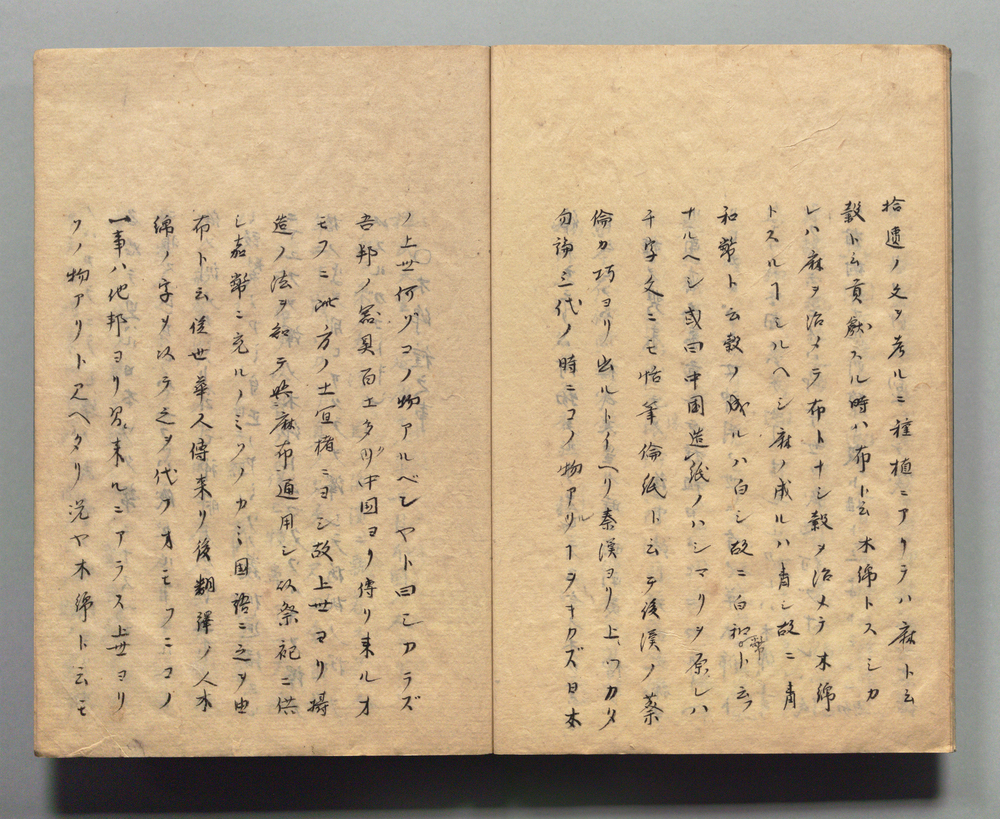 拾遺ノ文ヲ考ルニ種植ニアリテハ麻ト云
穀ト云貢献スル時ハ布ト云木綿トス シカ
レハ麻ヲ治メテ布トナシ穀ヲ治メテ木綿
トスルヿシルヘシ麻ノ成ルハ青シ故ニ青
和幣ト云穀ノ成ルハ白シ故ニ白和幣ト云
ナルヘシ或曰中国造紙ノハシマリヲ原レハ
千字文ニモ恬筆倫紙ト云テ後漢ノ蔡
倫カ巧ヨリ出ルトイヘリ秦漢ヨリ上ツカタ
勿論三代ノ時ニコノ物アルヿヲキカズ日本
ノ上世何ゾコノ物アルベシヤト曰シカラズ
吾邦ノ器具百工タリ中国ヨリ傳リ来ルオ
モフニ此方ノ土宜楮ニヨシ故上世ヨリ搨
造ノ法ヲ知テ與麻布通用シ以祭祀ニ供
シ嘉幣ニ充ルノミソノカミ国語ニ之ヲ由
布ト云後世華人傳来リ後翻譯ノ人木
綿ノ字ヲ以テ之ヲ代フオモフニコノ
一事ハ他邦ヨリ習来ルニアラス上世ヨリ
ソノ物アリト見ヘタリ況ヤ木綿ト云モ